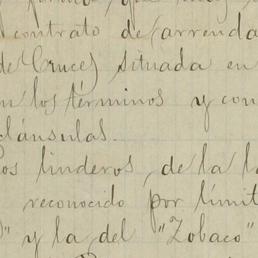 contrato de (arrenda
de Cruces) situada en
en los términos y con
cláusulas.
Los linderos, de la
reconocido por límit
" y la del "Zobaco"